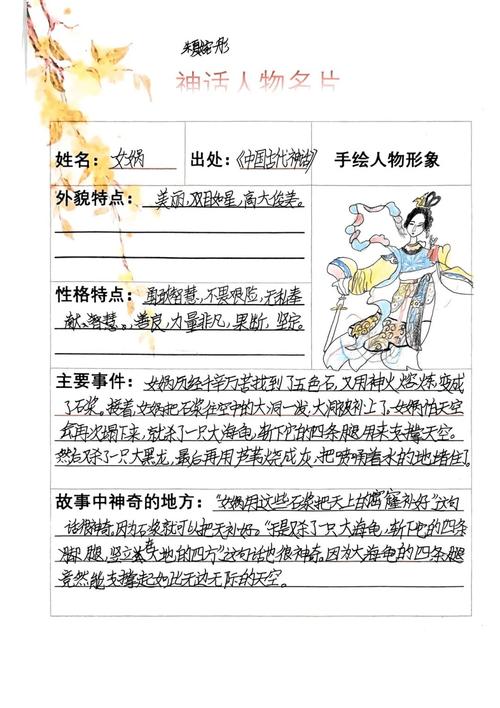 神话人物名片
姓名：女娲 出处：《中国古代神话》 手绘人物形象
外貌特点：美丽,双目如星,高大俊美。
性格特点：勇敢智慧,不畏艰险,无私奉
献、智慧。善良,力量非凡,果断,坚定。
主要事件：女娲历经千辛万苦找到了五色石,又用神火熔炼变成
了石浆。接着,女娲把石浆往空中的大洞一泼,大洞被补上了。女娲怕天空
会再次塌下来,就杀了一只大海龟,斩下它的四条腿用来支撑天空。
然后又杀了一只大黑龙,最后再用芦苇烧成灰,把喷涌着水的地堵住了。
故事中神奇的地方：“女娲用这些石浆把天上的窟窿补好”这句
话很神奇,因为石浆就可以把天补好。“于是杀了一只大海龟,斩下它的四条
腿,竖立在大地的四方”这句话也很神奇。因为大海龟的四条腿
竟然能支撑起如此无边无际的天空。